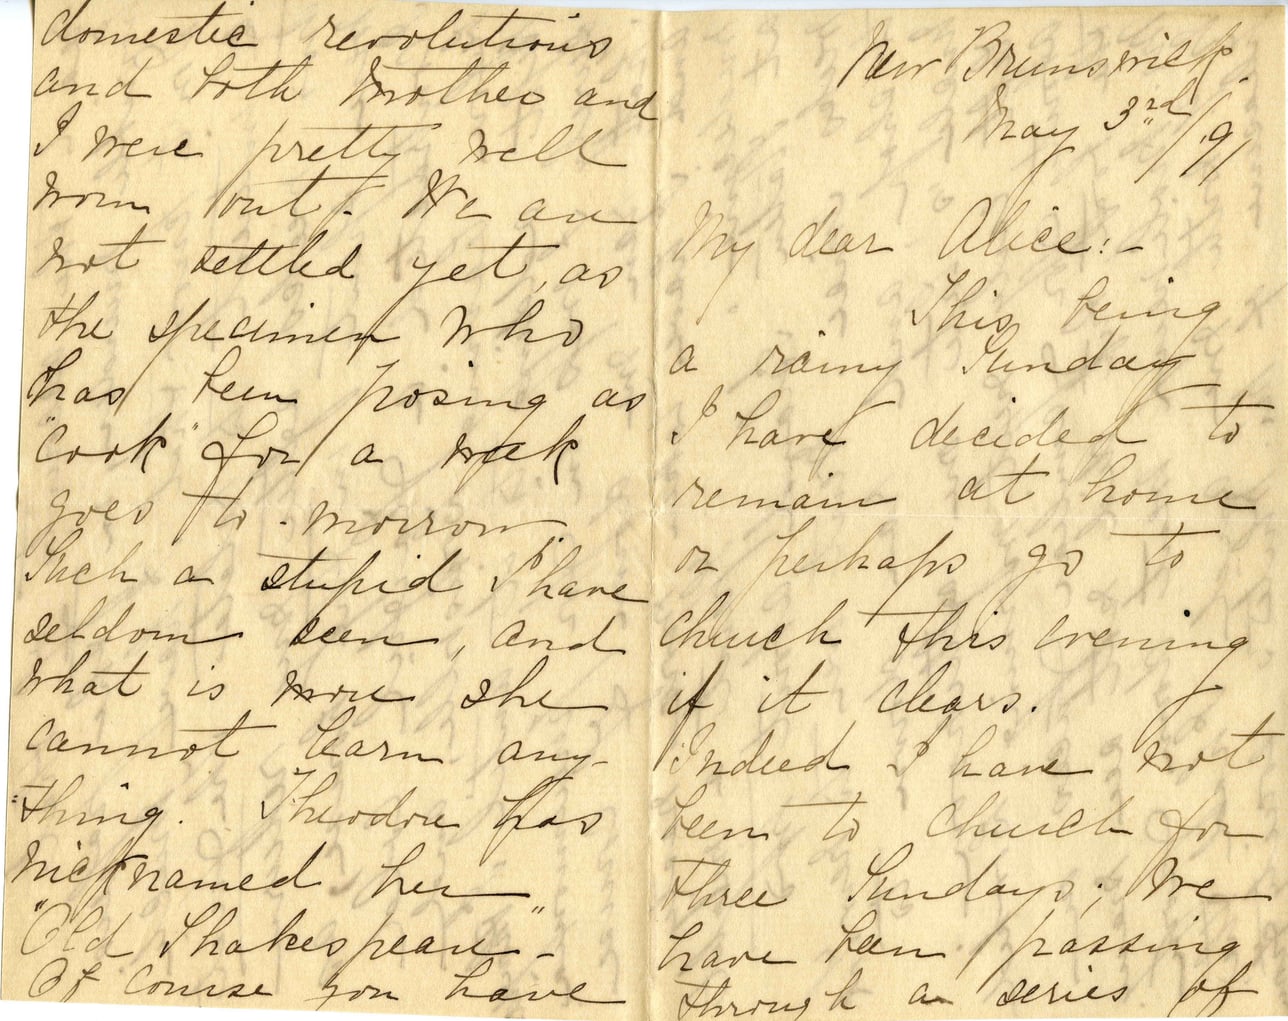 New Brunswick.
May 3rd/91
My dear Alice:-
This being
a rainy Sunday
I have decided to
remain at home
or perhaps go to
church this evening
if it clears.
Indeed I have not
been to church for
three Sundays; we
have been passing
through a series of
domestic revolutions
and both Mother and
I were pretty well
worn out. We are
not settled yet, as
the specimen who
has been posing as
"cook" for a week
goes to-morrow.
Such a stupid I have
seldom seen, and
what is more she
cannot learn any-
=thing. Theodore has
nicknamed her
"Old Shakespeare"-
Of course you have